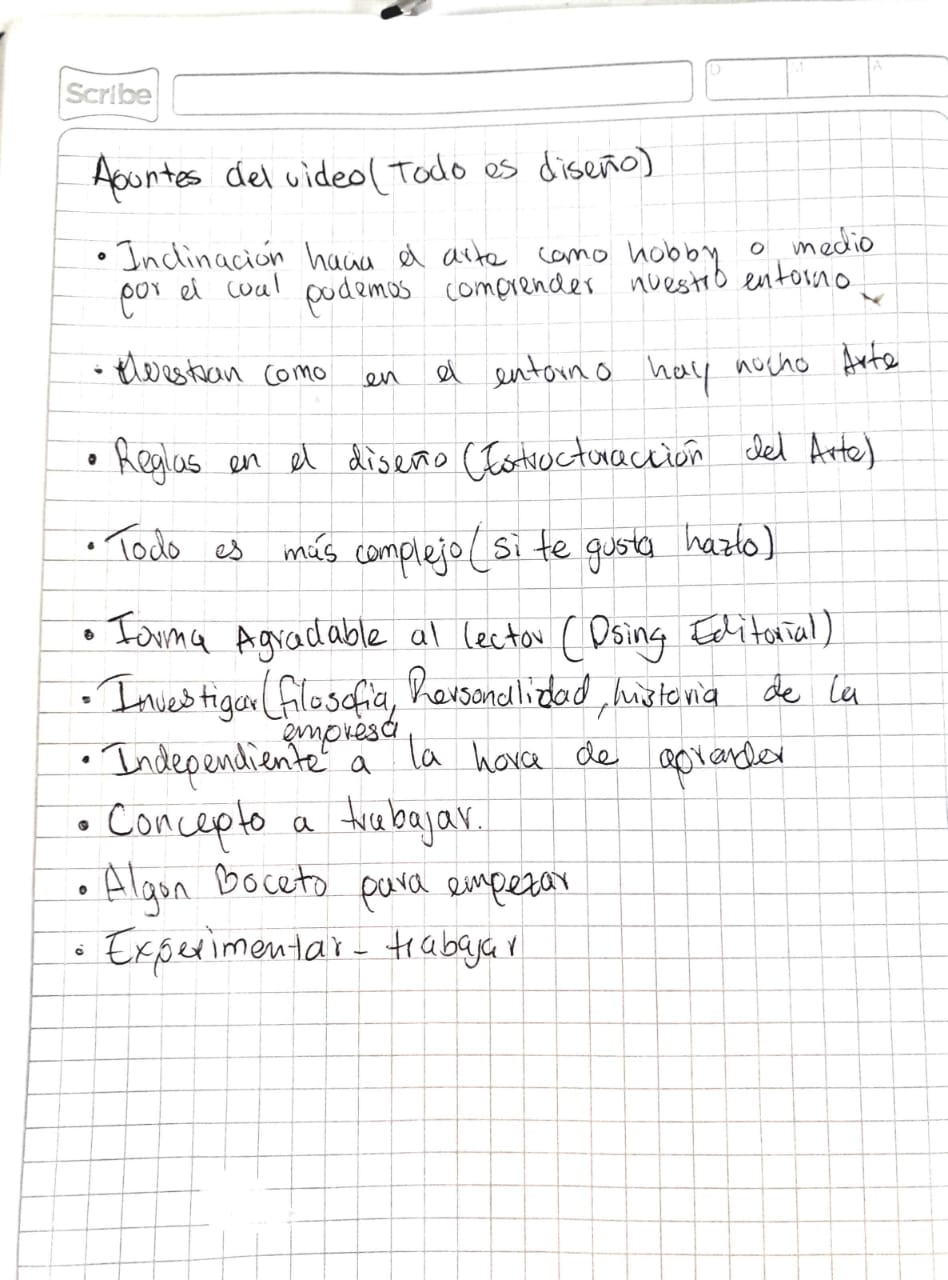 Scribe
D M A
Apuntes del video (Todo es diseño)
• Inclinación hacia el arte como hobby o medio
por el cual podemos comprender nuestro entorno
• Muestran como en el entorno hay mucho Arte
• Reglas en el diseño (Estructuracción del Arte)
• Todo es más complejo (si te gusta hazlo)
• Forma Agradable al lector (Dsing Editorial)
• Investigar (filosofia, Personalidad, historia de la
empresa,
• Independiente a la hora de aprender
• Concepto a trabajar.
• Algun Boceto para empezar
• Experimentar - trabajar